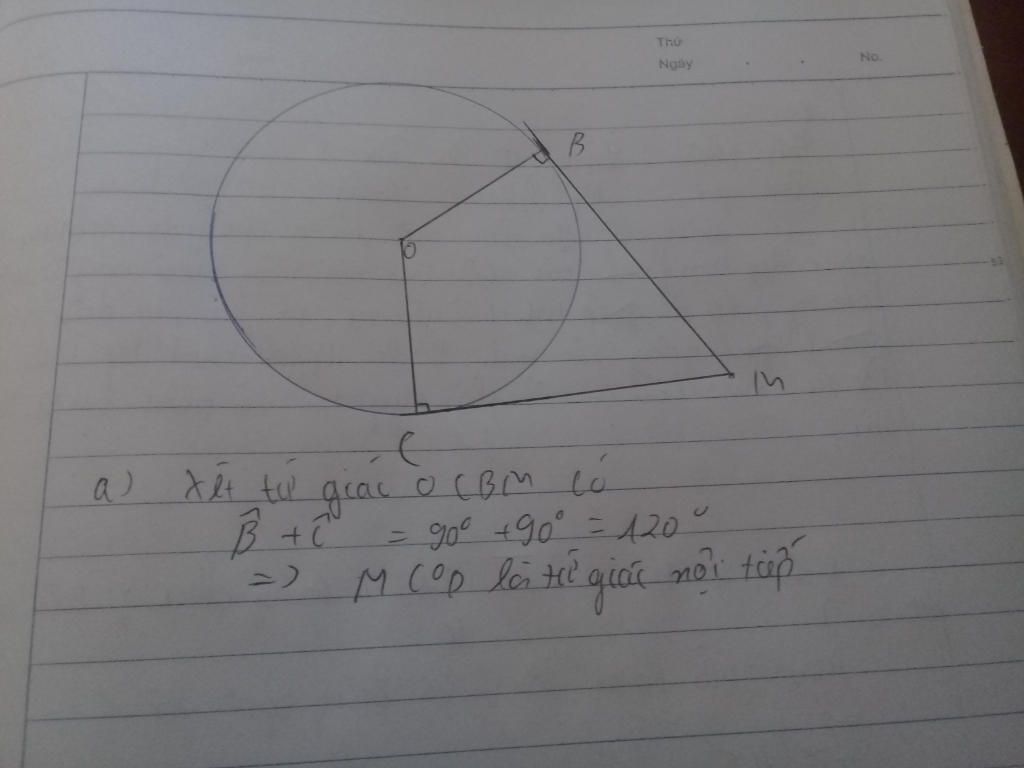 Thứ
Ngày . . No.
B
O
M
C
a) Xét tứ giác OCBM có
B̂ + Ĉ = 90° + 90° = 120°
=> MCOD là tứ giác nội tiếp